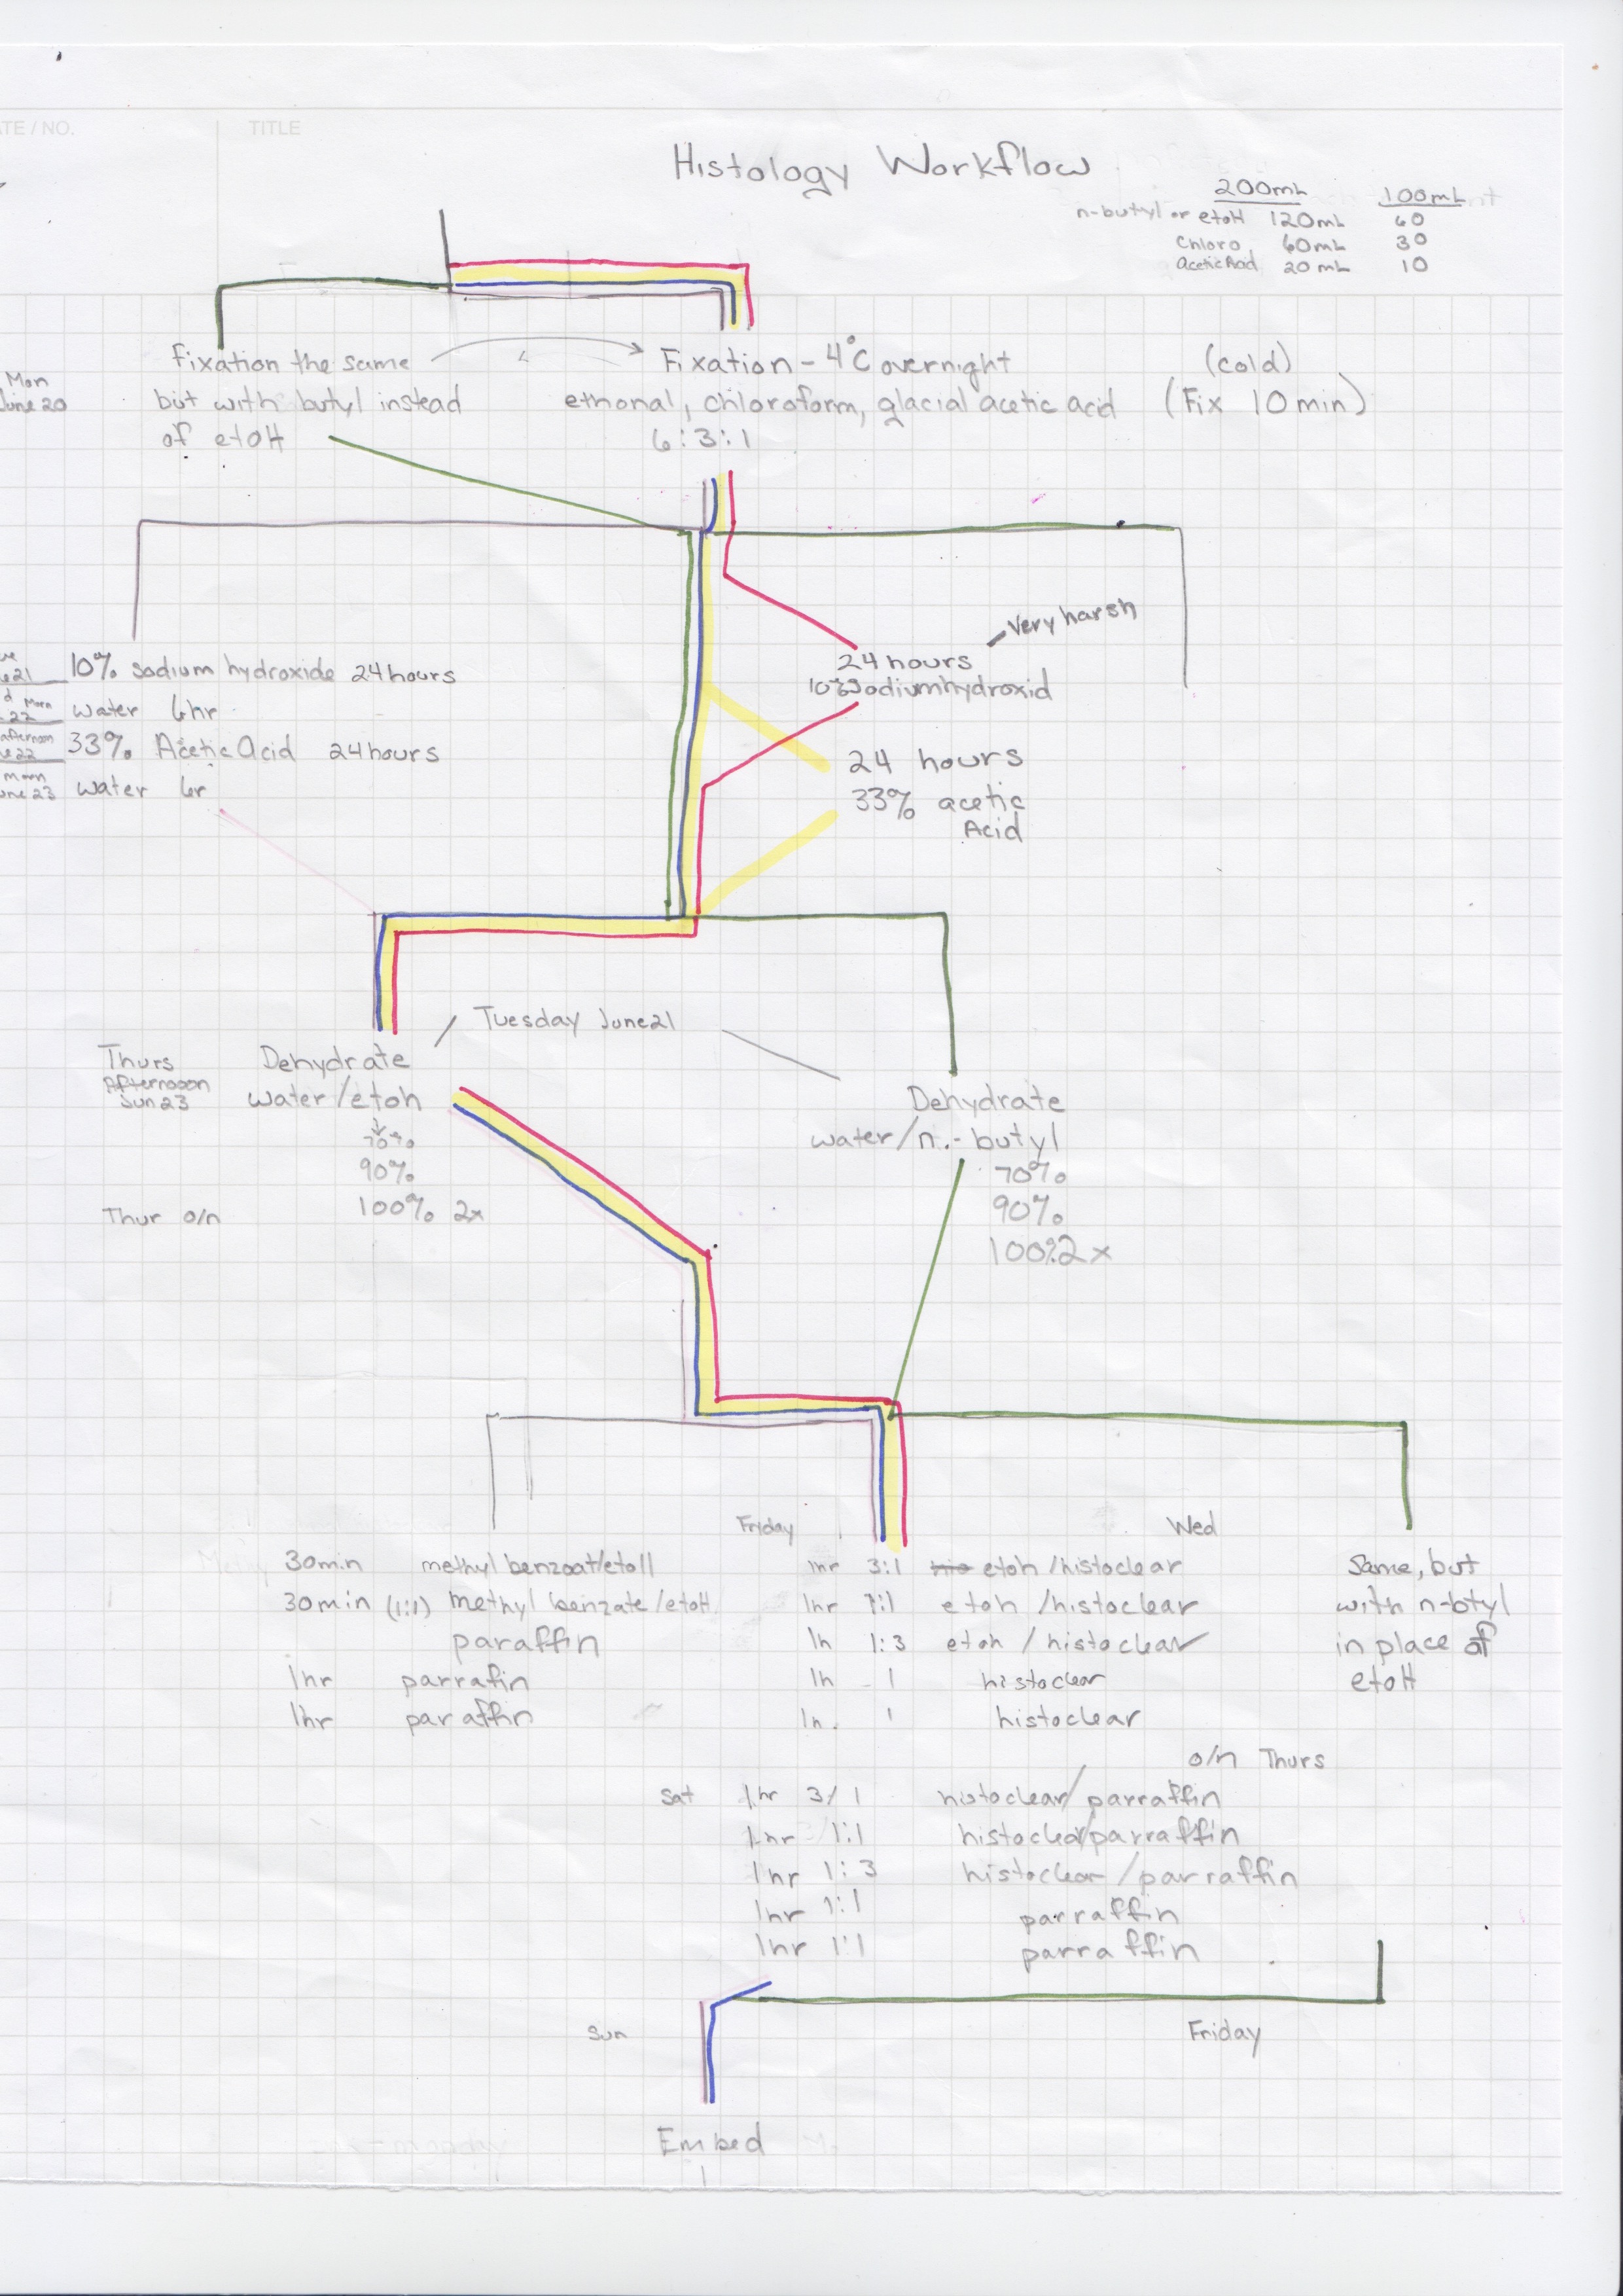 ATE / NO.
TITLE
Histology Workflow
200mL 100mL
n-butyl or etoH 120mL 60
Chloro, 60mL 30
Acetic Acid 20mL 10
fixation the same
but with butyl instead
of etoH
Fixation - 4°C overnight
ethonal, chloroform, glacial acetic acid
6:3:1
(cold)
(Fix 10 min)
Mon
June 20
10% sodium hydroxide 24 hours
water 6hr
33% Acetic Acid 24 hours
water 6r
very harsh
24 hours
10% Sodiumhydroxid
24 hours
33% acetic
Acid
Tuesday June 21
Thurs
Afternooon
Jun 23
Dehydrate
water/etoh
70%
90%
100% 2x
Thur o/n
Dehydrate
water/n.-butyl
70%
90%
100% 2x
Friday
Wed
30min methyl benzoat/etoH
30min (1:1) methyl benzate/etoH
paraffin
1hr parrafin
1hr paraffin
1hr 3:1 etoh/histoclear
1hr 1:1 etoh/histoclear
1h 1:3 etoh/histoclear
1h 1 histoclear
1h. 1 histoclear
Same, but
with n-btyl
in place of
etoH
o/n Thurs
Sat 1hr 3/1 histoclear/parraffin
1hr 1:1 histoclear/parraffin
1hr 1:3 histoclear/parraffin
1hr 1:1 parraffin
1hr 1:1 parraffin
Sun
Friday
Embed